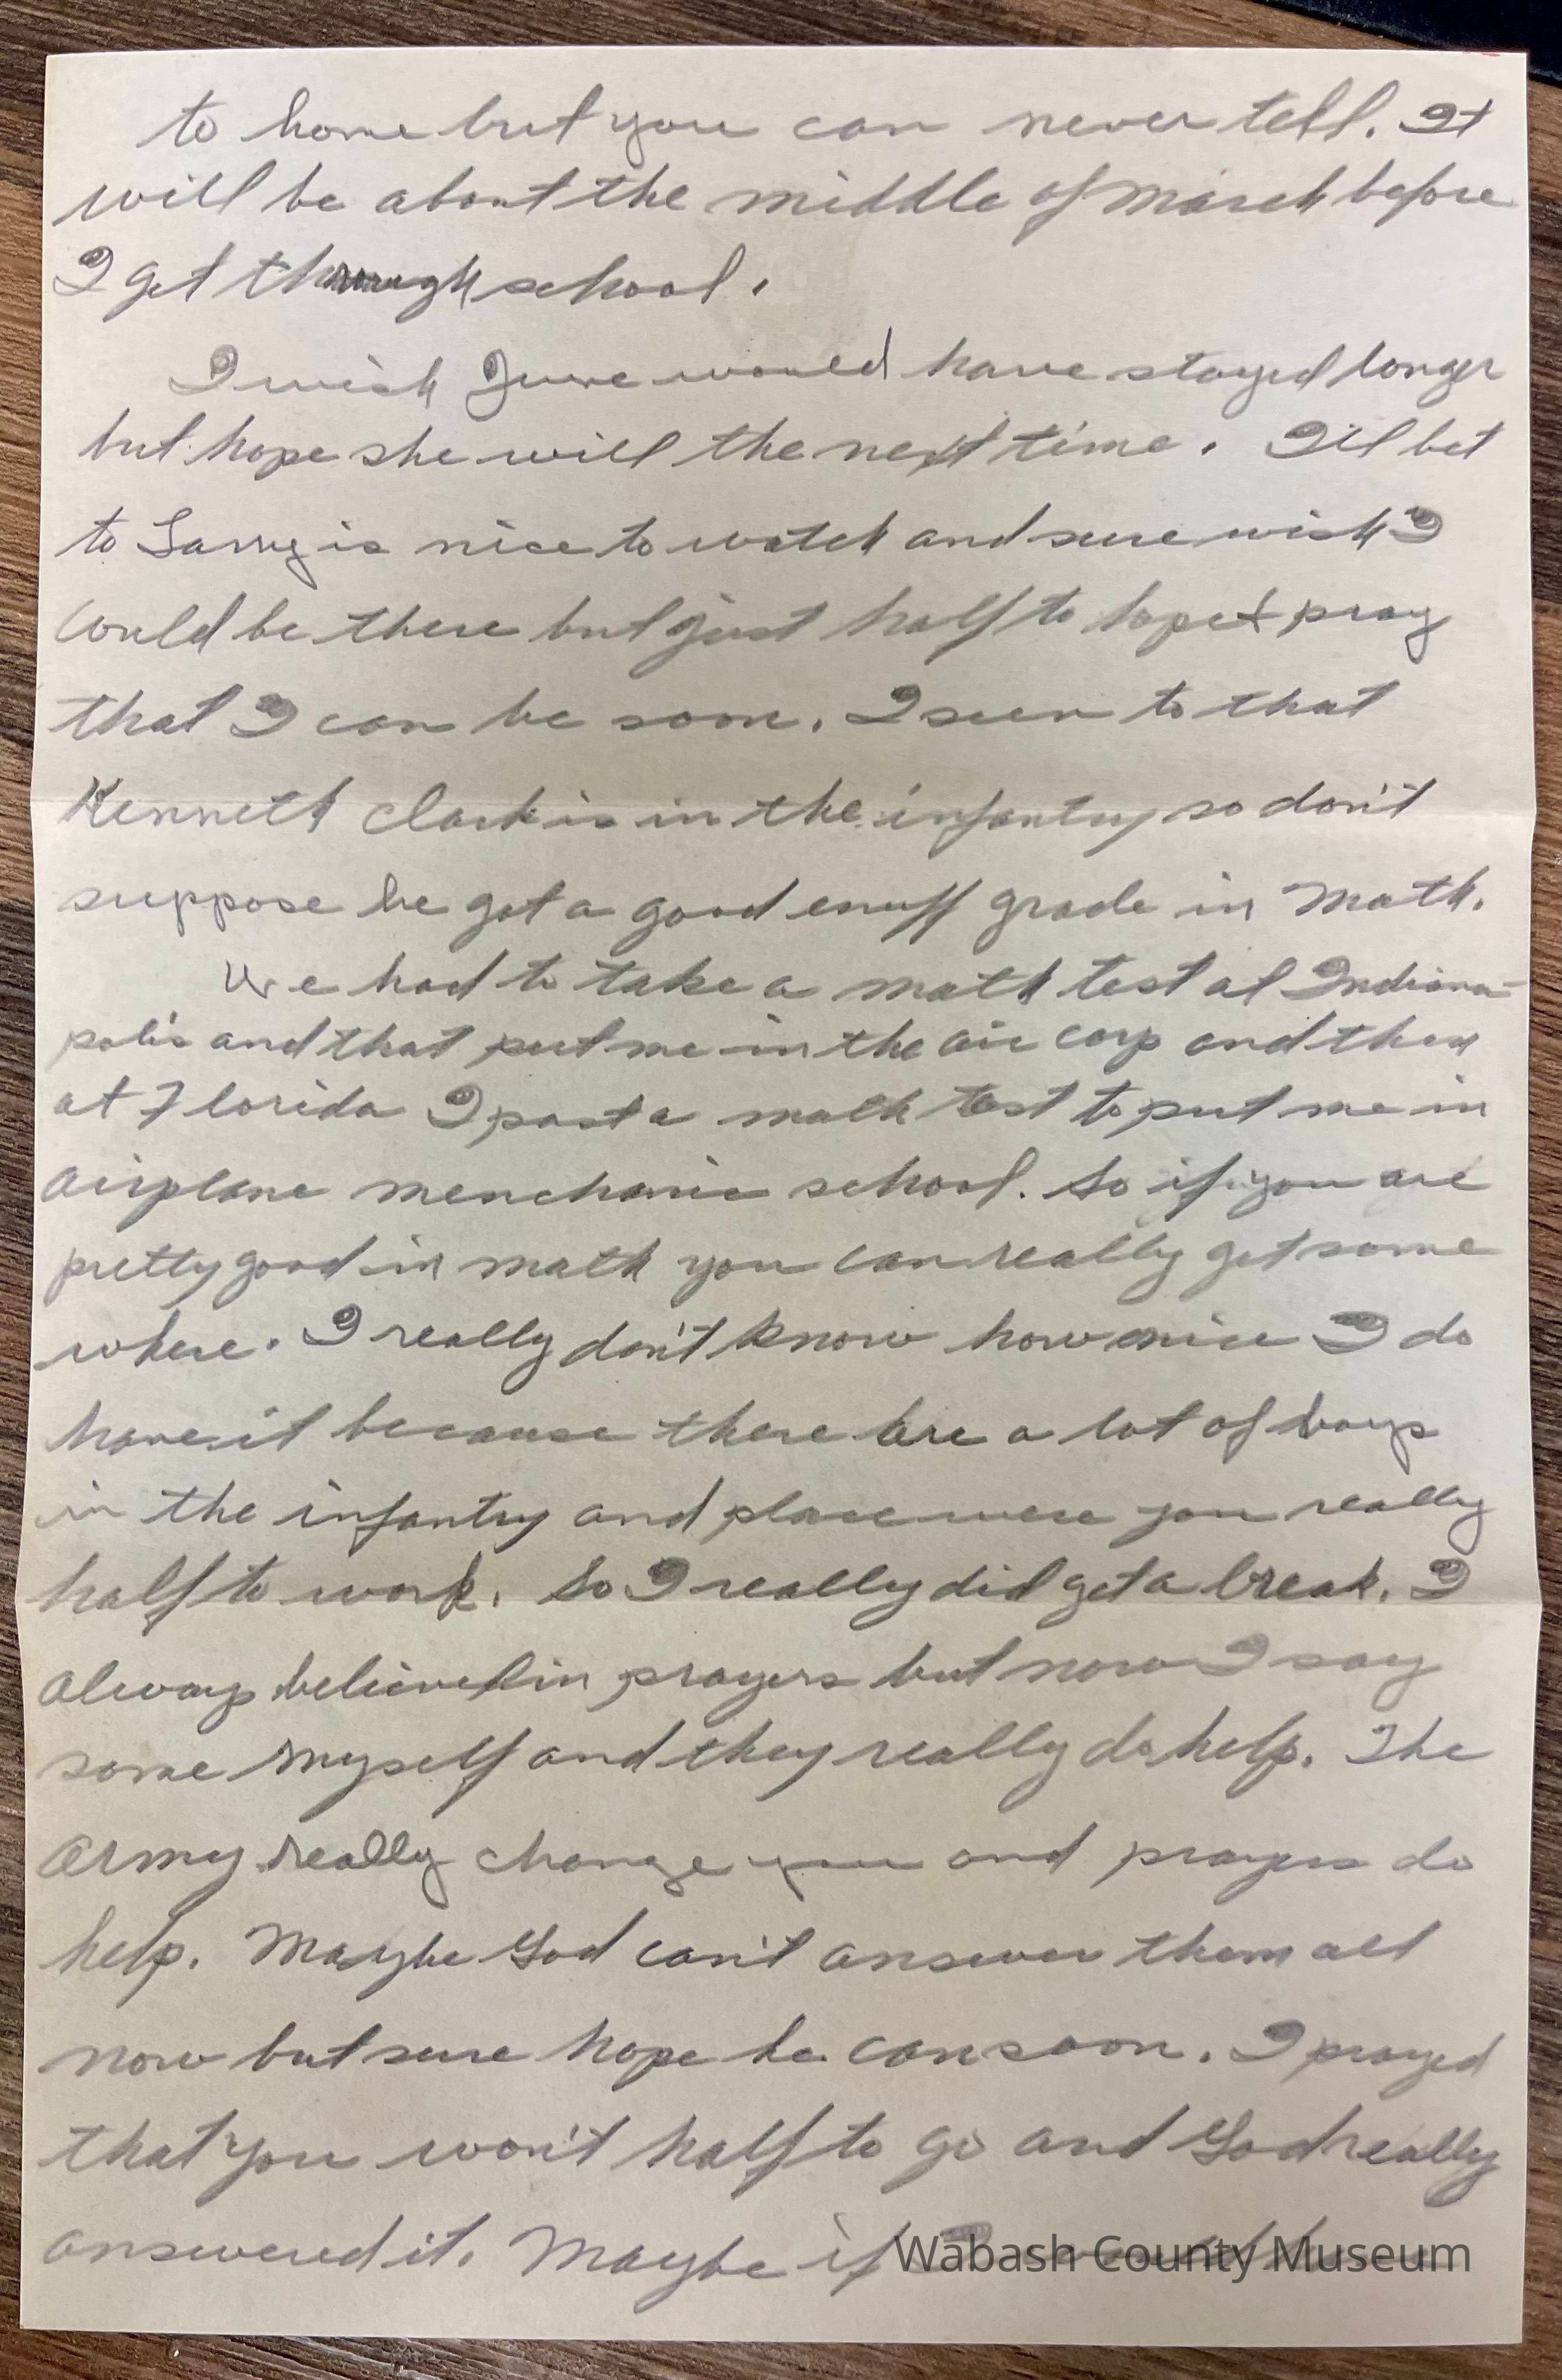 to home but you can never tell. It
will be about the middle of March before
I get through school.
I wish June would have stayed longer
but hope she will the next time. I'll bet
to Larry is nice to watch and sure wish I
could be there but just half to hope & pray
that I can be soon. I seen to that
Kenneth Clark is in the infantry so don't
suppose he got a good enuff grade in Math.
We had to take a math test at Indiana-
polis and that put me in the air corp and then
at Florida I past a math test to put me in
airplane menchanic school. So if you are
pretty good in math you can really get some
where. I really don't know how nice I do
have it because there are a lot of boys
in the infantry and place were you really
half to work. So I really did get a break. I
always believed in prayers but now I say
some myself and they really do help. The
Army really change you and prayers do
help. Maybe God can't answer them all
now but sure hope he can soon. I prayed
that you won't half to go and God really
answered it. Maybe if
Wabash County Museum